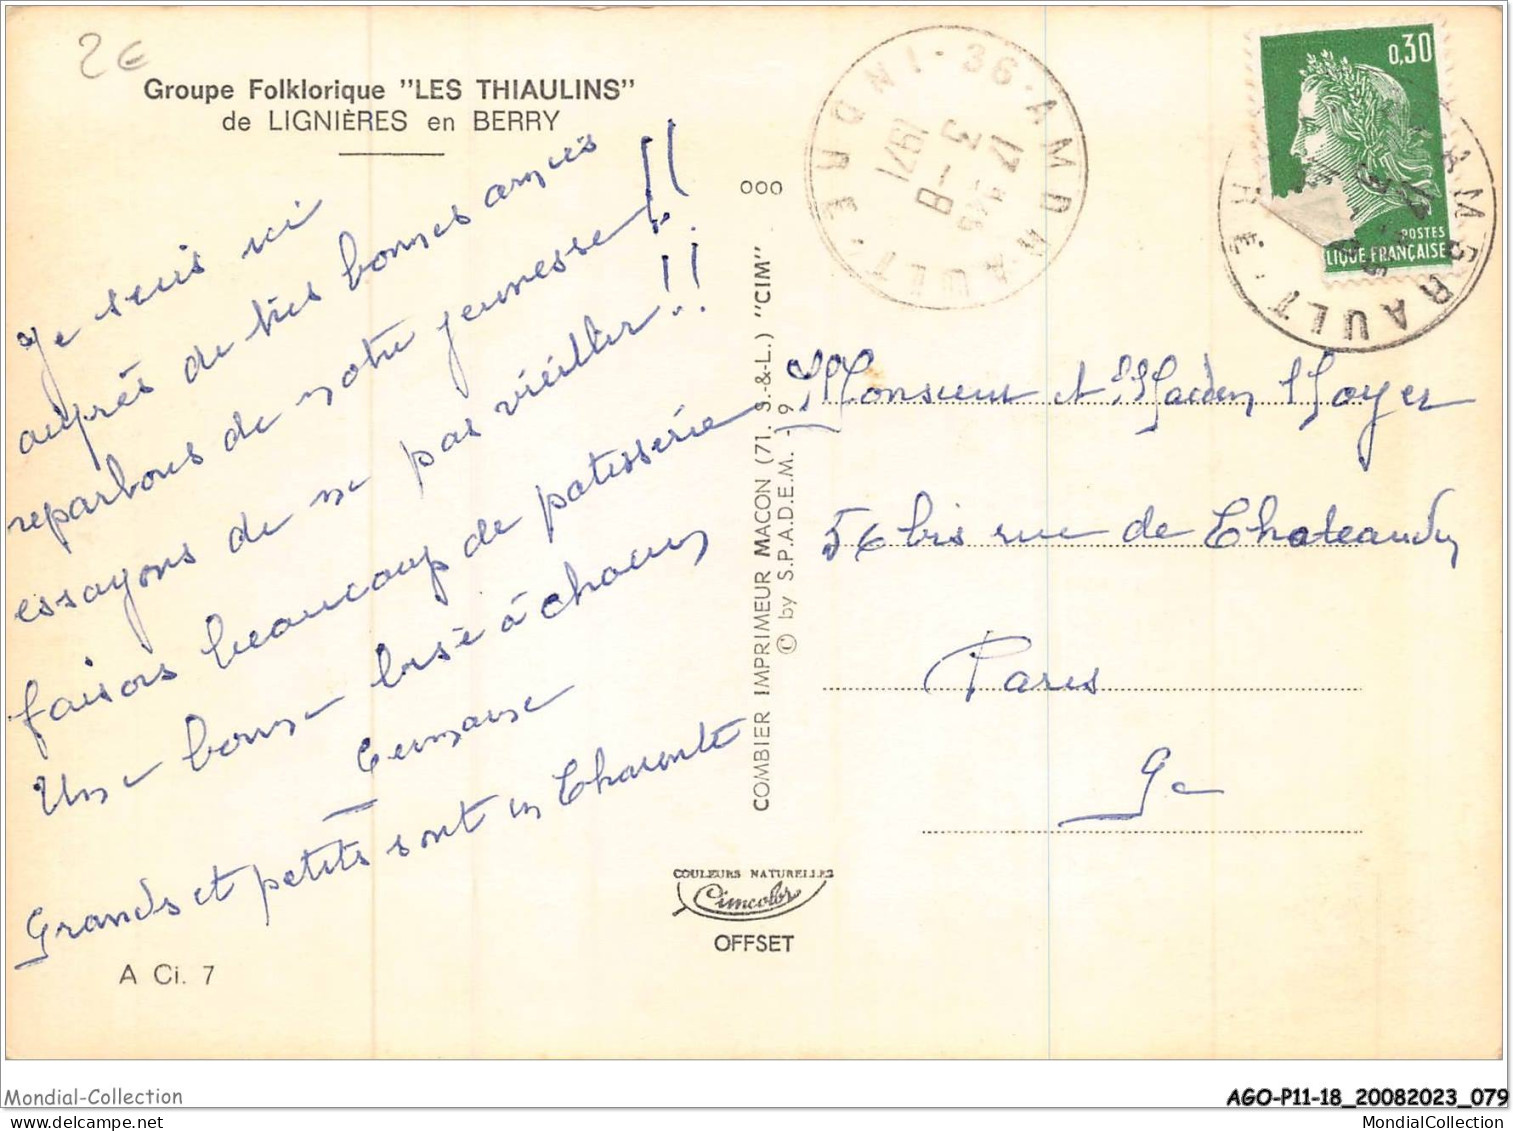 2€
Groupe Folklorique "LES THIAULINS"
de LIGNIÈRES en BERRY
Je suis ici
auprès de très bonnes amies
reparlons de notre jeunesse!!
essayons de ne pas vieillir!!
faisons beaucoup de patisserie
Une bonne bise à chacun
Germaine
Grands et petits sont en Charente
A Ci. 7
OOO
COMBIER IMPRIMEUR MACON (71. S.-&-L.) "CIM"
© by S.P.A.D.E.M. - 9
COULEURS NATURELLES
Cimcolor
OFFSET
36 - AMDRAULT. RE
17 H
3 - 8
1971
0,30
POSTES
LIQUE FRANÇAISE
Monsieur et Noyer
56 bis rue de Chateaudun
Paris
9e
Mondial-Collection
AGO-P11-18_20082023_079
MondialCollection